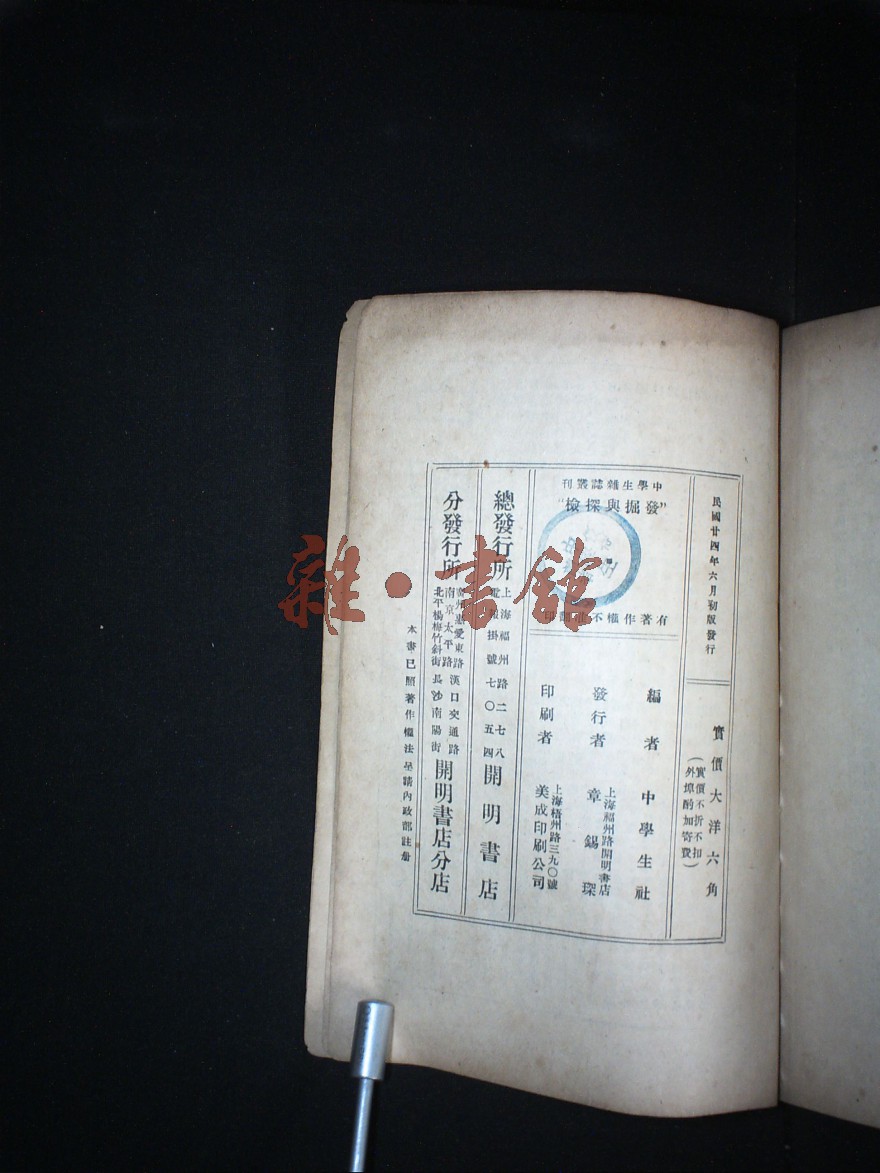 民國廿四年六月初版發行
實價大洋六角
(實價不折不扣
外埠酌加寄費)
中學生雜誌叢刊
"發掘與探檢"
有著作權不准翻印
編者 中學生社
發行者 上海福州路開明書店
章錫琛
印刷者 上海梧州路三九〇號
美成印刷公司
總發行所 上海福州路二七八
電報掛號七〇五四 開明書店
分發行所 廣州惠愛東路 漢口交通路
南京太平路 長沙南陽街
北平楊梅竹斜街 開明書店分店
本書已照著作權法呈請內政部註冊
雜·書館